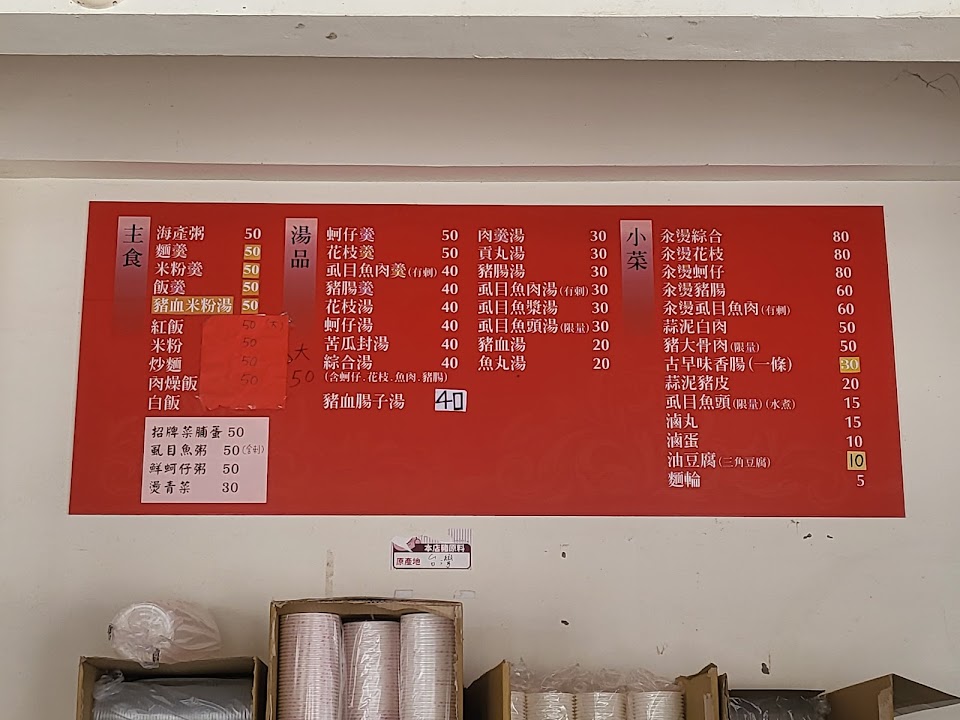 主食
海產粥 50
麵羹 50
米粉羹 50
飯羹 50
豬血米粉湯 50
紅飯 50
米粉 50
炒麵 50
肉燥飯 50
白飯
大
50
招牌菜脯蛋 50
虱目魚粥 50
鮮蚵仔粥 50
燙青菜 30
湯品
蚵仔羹 50
花枝羹 50
虱目魚肉羹(有刺) 40
豬腸羹 40
花枝湯 40
蚵仔湯 40
苦瓜封湯 40
綜合湯 40
(含蚵仔.花枝.魚肉.豬腸)
豬血腸子湯 40
肉羹湯 30
貢丸湯 30
豬腸湯 30
虱目魚肉湯(有刺) 30
虱目魚漿湯 30
虱目魚頭湯(限量) 30
豬血湯 20
魚丸湯 20
小菜
汆燙綜合 80
汆燙花枝 80
汆燙蚵仔 80
汆燙豬腸 60
汆燙虱目魚肉(有刺) 60
蒜泥白肉 50
豬大骨肉(限量) 50
古早味香腸(一條) 30
蒜泥豬皮 20
虱目魚頭(限量)(水煮) 15
滷丸 15
滷蛋 10
油豆腐(三角豆腐) 10
麵輪 5
原產地 台灣